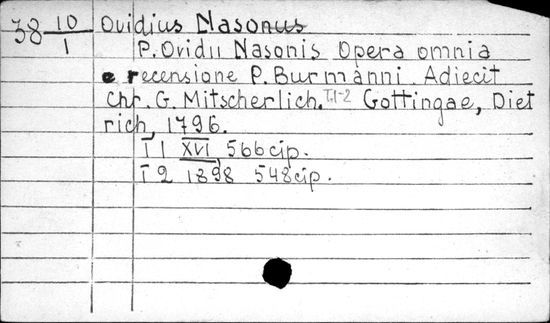 38 10/1 Ovidius Nasonus
P. Ovidii Nasonis Opera omnia
e recensione P. Burmanni. Adiecit
Chr. G. Mitscherlich. T.1-2 Gottingae, Diet
rich, 1796.
T 1 XVI, 566 c/p.
T 2 1898 548 c/p.